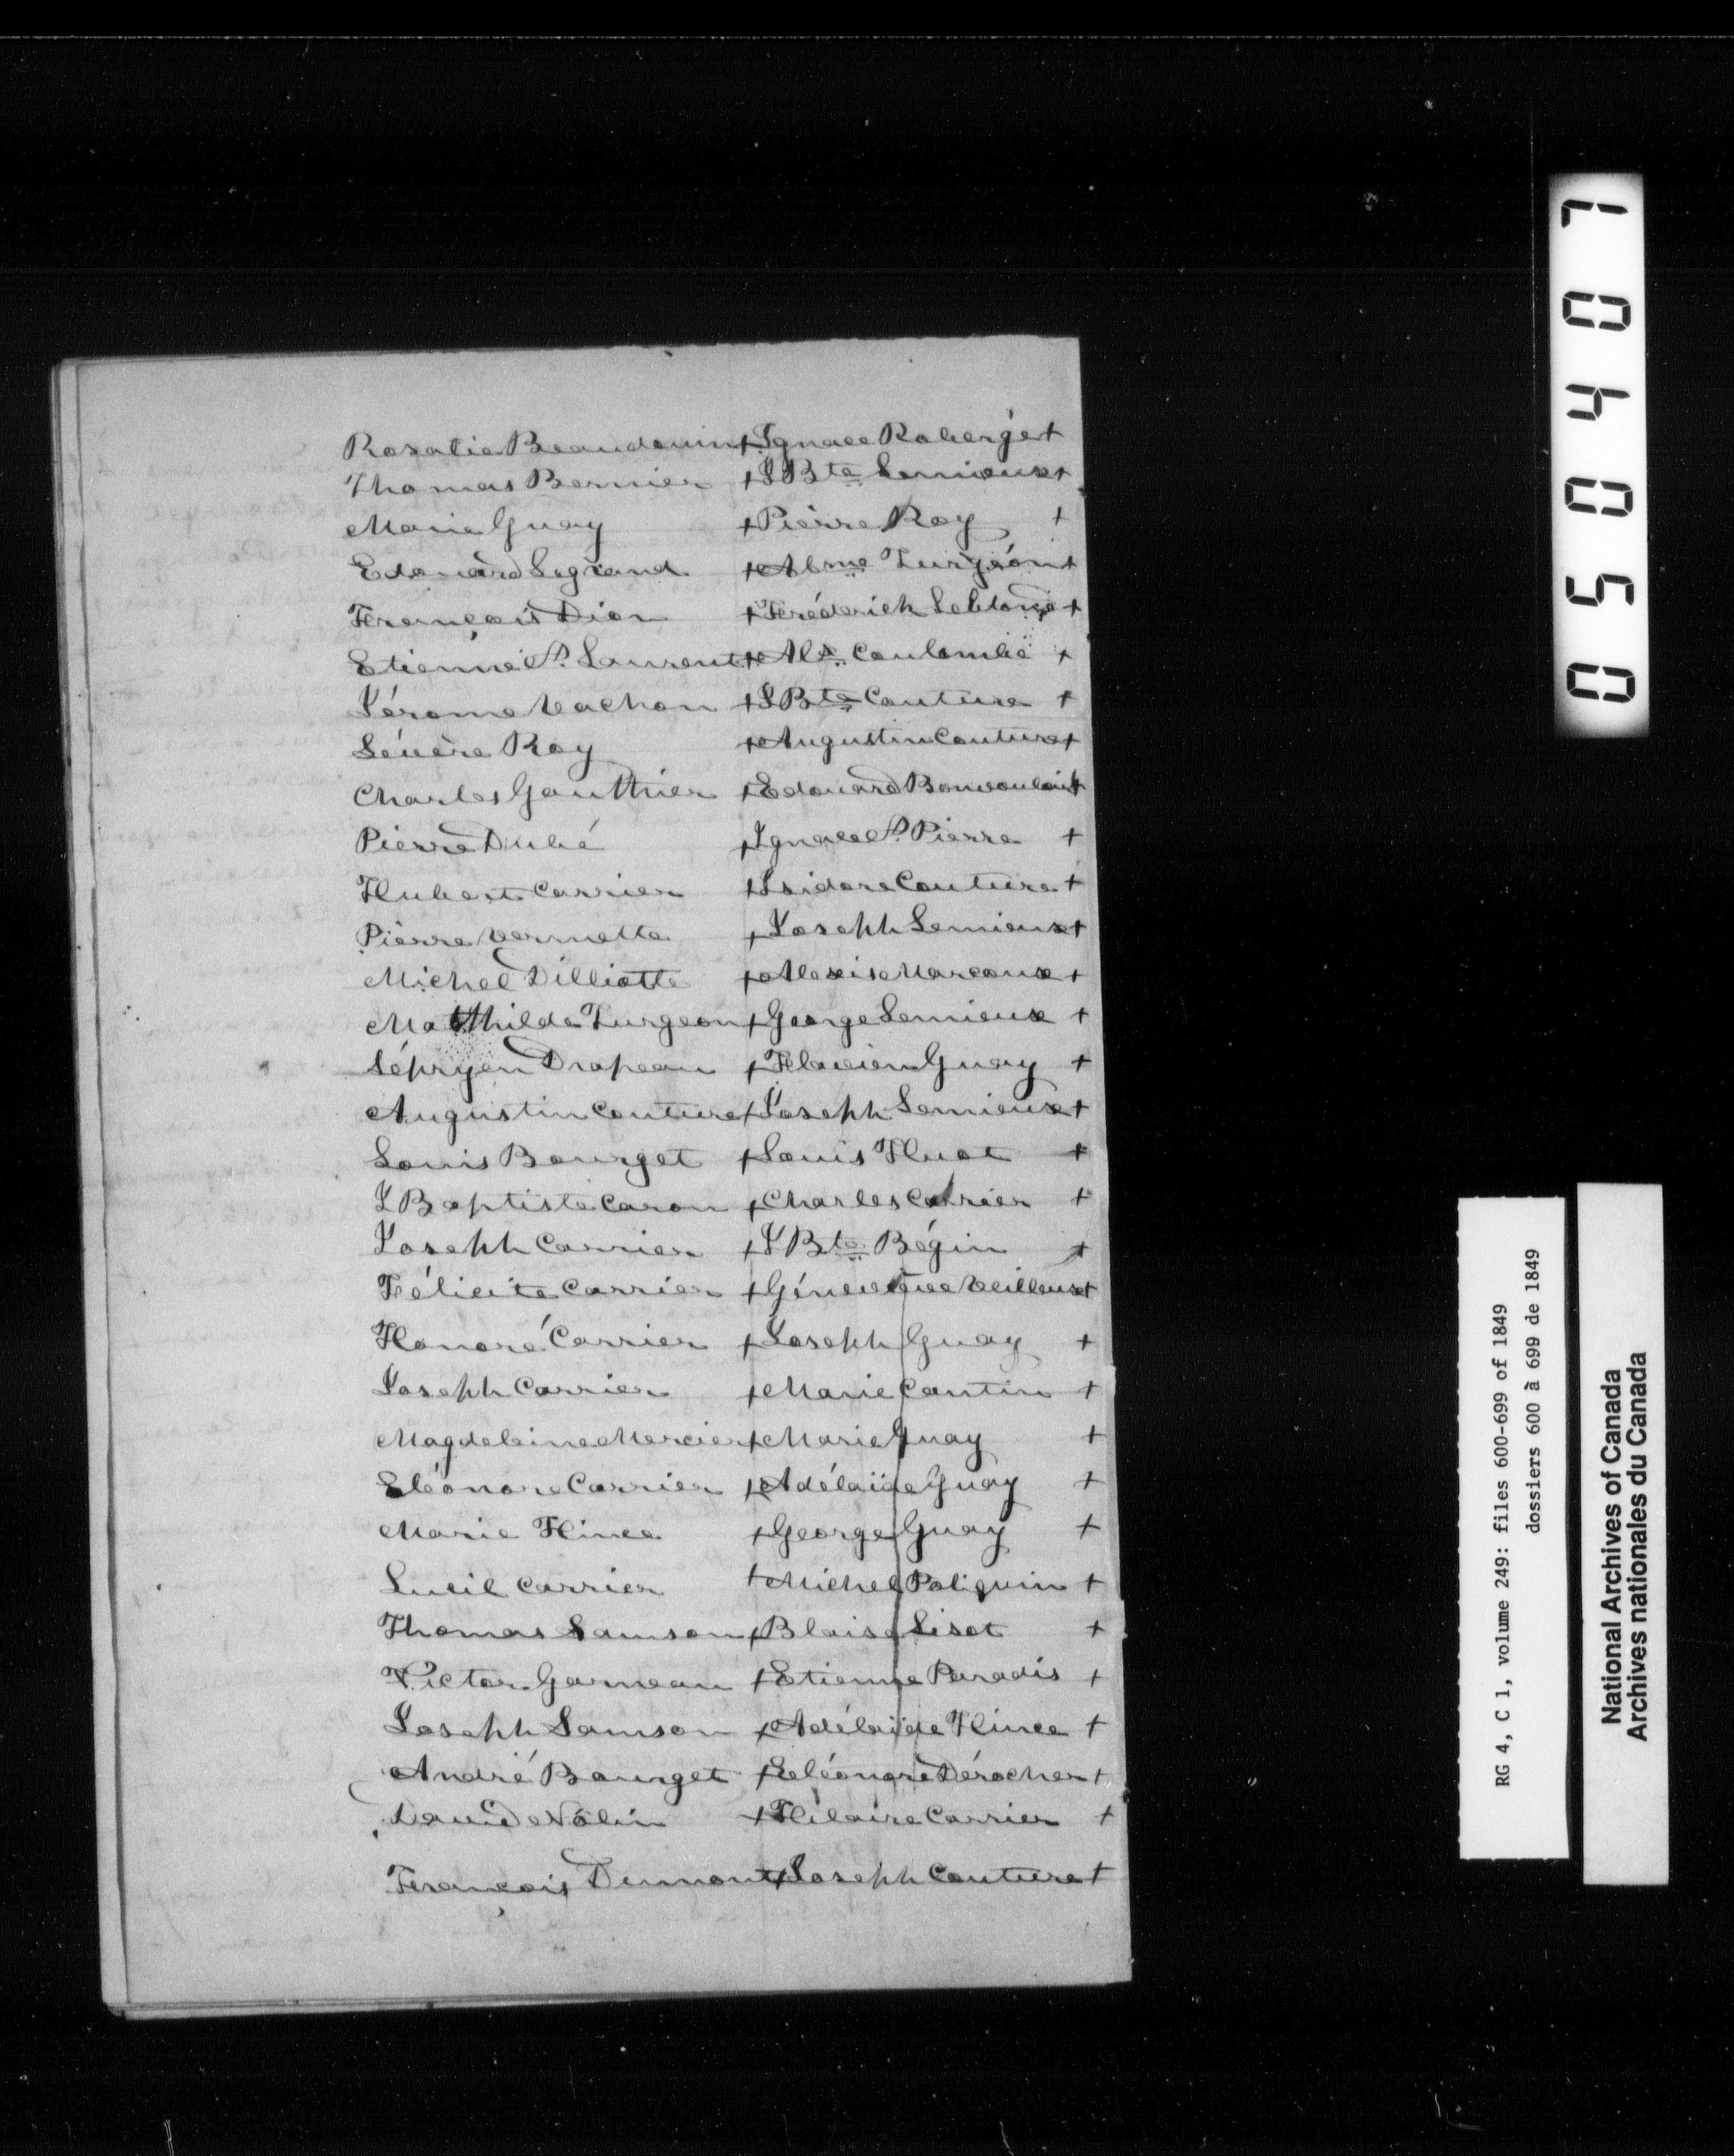 Rosalie Beaudouin + Ignace Roberge +
Thomas Bernier + J Bte Lemieux +
Marie Guay + Pierre Roy +
Edouard Legrand + Abme Turgéon +
François Dion + Fréderich Leblond +
Etienne St. Laurent + Als. Coulombe +
Jérome Vachon + J Bte Couture +
Sévère Roy + Augustin Couture +
Charles Gauthier + Edouard Bonvouloir +
Pierre Dubé + Ignace St. Pierre +
Hubert Carrier + Isidore Couture +
Pierre Vermette + Joseph Lemieux +
Michel Dilliotte + Alexis Marcoux +
Matthilde Turgeon + George Lemieux +
Sépryen Drapeau + Flavien Guay +
Augustin Couture + Joseph Lemieux +
Louis Bourget + Louis Huot +
J Baptiste Caron + Charles Carrier +
Joseph Carrier + J Bte Bégin +
Félicite Carrier + Géneviève Veilleux +
Honoré Carrier + Joseph Guay +
Joseph Carrier + Marie Cantin +
Magdeleine Mercier + Marie Guay +
Eléonore Carrier + Adélaïde Guay +
Marie Hince + George Guay +
Lucil Carrier + Michel Poliquin +
Thomas Samson + Blaise Liset +
Victor Garneau + Etienne Paradis +
Joseph Samson + Adélaïde Hince +
André Bourget + Eléonore Dérocher +
David Nolin + Hilaire Carrier +
François Dumont + Joseph Couture +
050407
RG 4, C 1, volume 249: files 600-699 of 1849
dossiers 600 à 699 de 1849
National Archives of Canada
Archives nationales du Canada